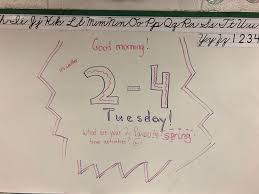 h Ii Jj Kk Ll Mm Nn Oo Pp Qq Rr Ss Tt Uu
Yy Zz 1 2 3 4
Good morning!
2-4
Tuesday!
What are your favorite spring
time activities?